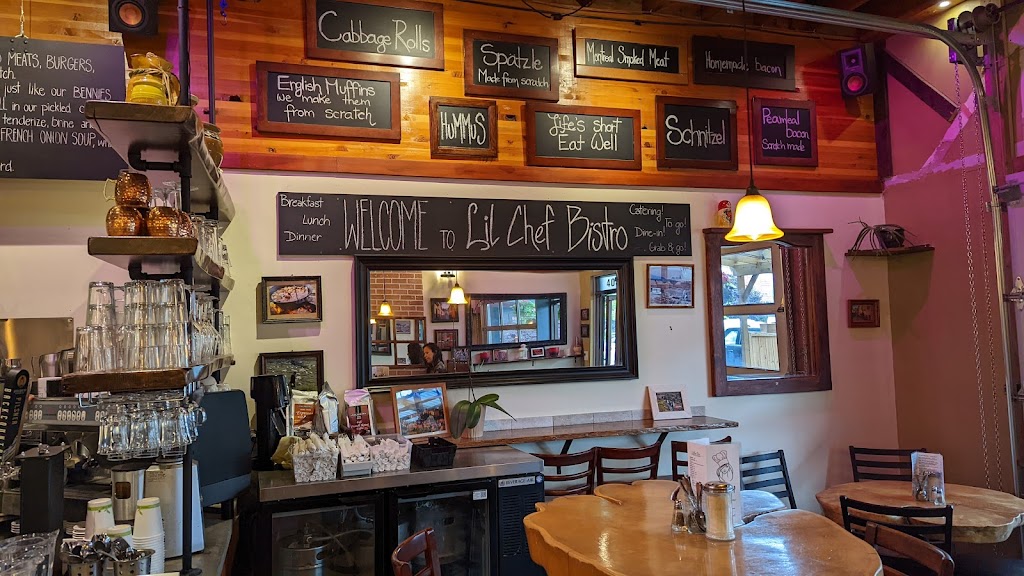 MEATS, BURGERS,
tch.
just like our BENNIES
in our pickled
tenderize, brine and
FRENCH ONION SOUP, wi
rd.
Cabbage Rolls
English Muffins
we make them
from scratch
Spatzle
Made from scratch
HuMMuS
Montreal Smoked Meat
Life's short
Eat Well
Homemade bacon
Schnitzel
Peameal
Bacon
Scratch made
Breakfast
Lunch
Dinner
WELCOME TO Lil Chef Bistro
Catering!
To go!
Dine-in!
Grab & go!